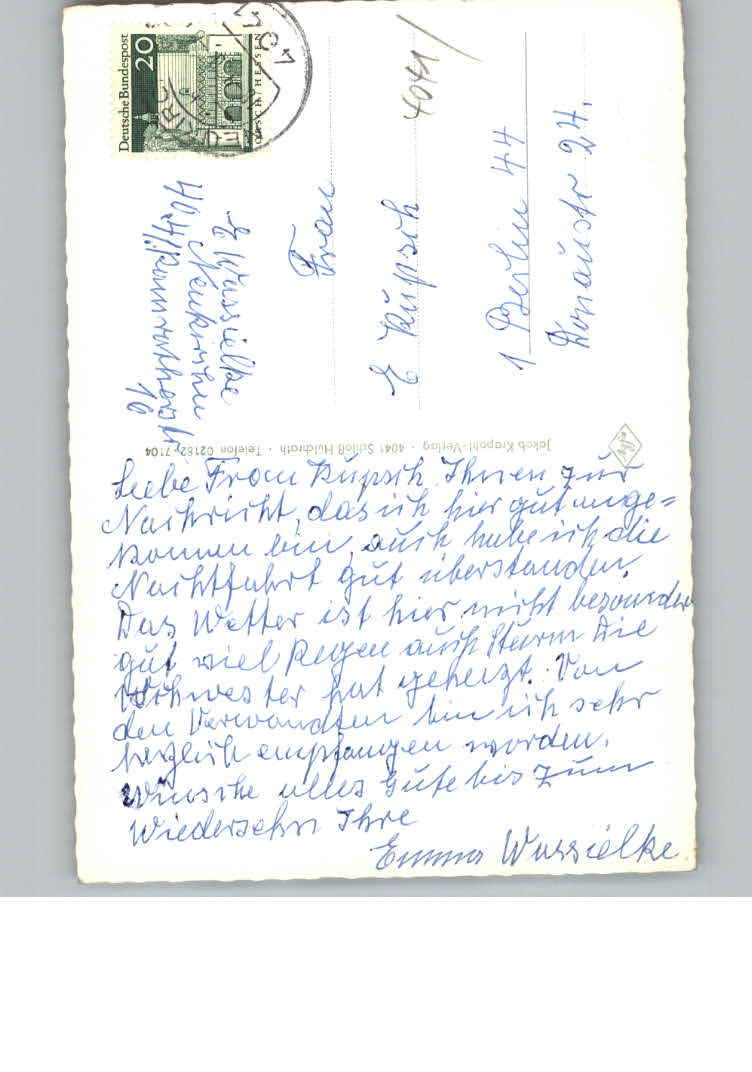 Deutsche Bundespost
20
LORSCH/HESSEN
4041
E Wassielke
4041 Neukirchen
10
Frau
E Kupsch
1 Berlin 44
Donaustr 24.
Jakob Krapohl-Verlag · 4041 Schloß Hülchrath · Telefon 02182 7104
Liebe Frau Kupsch Ihnen zur
Nachricht, das ich hier gut ange=
kommen bin, auch habe ich die
Nachtfahrt gut überstanden.
Das Wetter ist hier nicht besonders
gut viel Regen auch Sturm Die
Schwester hat geheizt. Von
den Verwandten bin ich sehr
herzlich empfangen worden.
Wünsche alles Gute bis zum
Wiedersehn Ihre
Emma Wassielke.